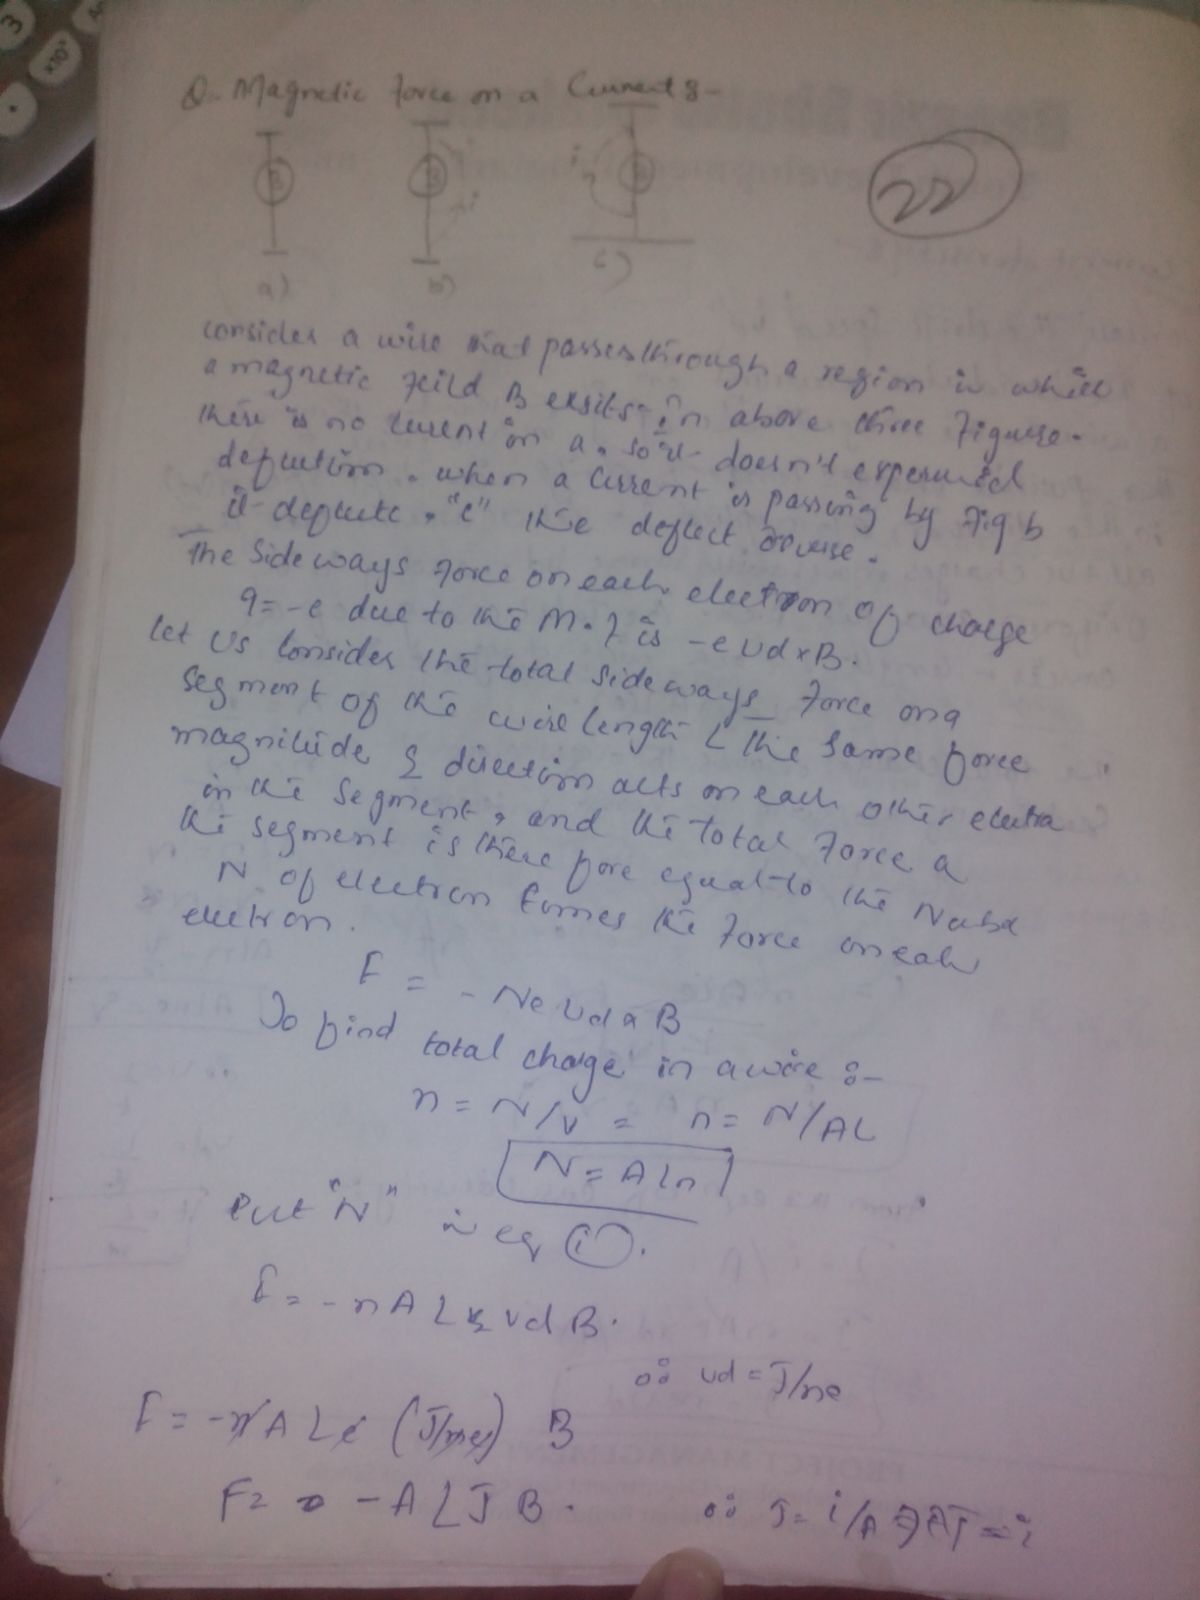 Q. Magnetic Force on a Current :-
22
B
B i
i B
a)
b)
c)
consider a wire that passes through a region in which
a magnetic feild B exsits in above three Figure.
there is no curent in a. so it doesn't experienced
deflection. when a current is passing by Fig b
it deflecte. "c" the deflect reverse.
The Side ways Force on each electron of charge
q=-e due to the M.f is -e vd x B.
let Us Consider the total Sideways Force on a
Segment of the wire length L the same force
magnitude & direction acts on each other electro
in the Segment, and the total Force a
the segment is there fore equal to the Nubr
N of electron times the Force on each
electron.
F = - Ne vd x B
To find total charge in a wire :-
n = N/v = n = N/AL
N = ALn
Put "N" in eq (i).
F = - n A L e vd B.
∵ vd = J/ne
F = - n A L e (J/ne) B
F = - A L J B. ∵ J = i/A ⇒ AJ = i